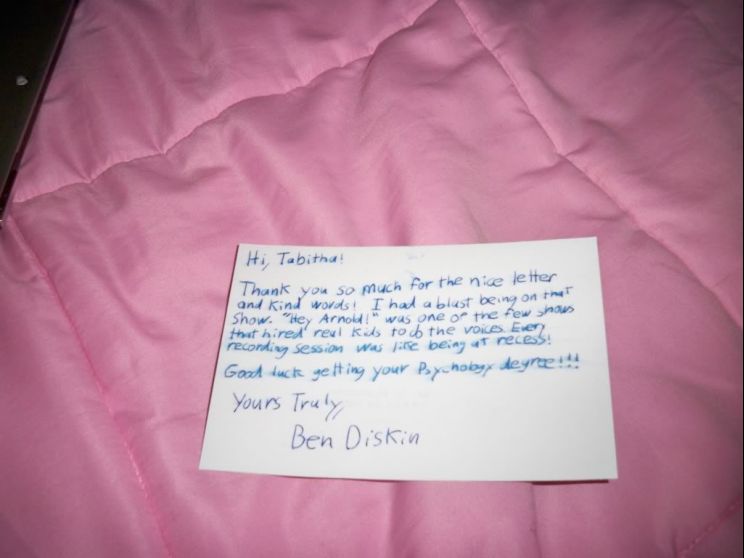 Hi, Tabitha!
Thank you so much for the nice letter
and kind words! I had a blast being on that
show. "Hey Arnold!" was one of the few shows
that hired real kids to do the voices. Every
recording session was like being at recess!
Good luck getting your Psychology degree!!!
Yours Truly,
Ben Diskin